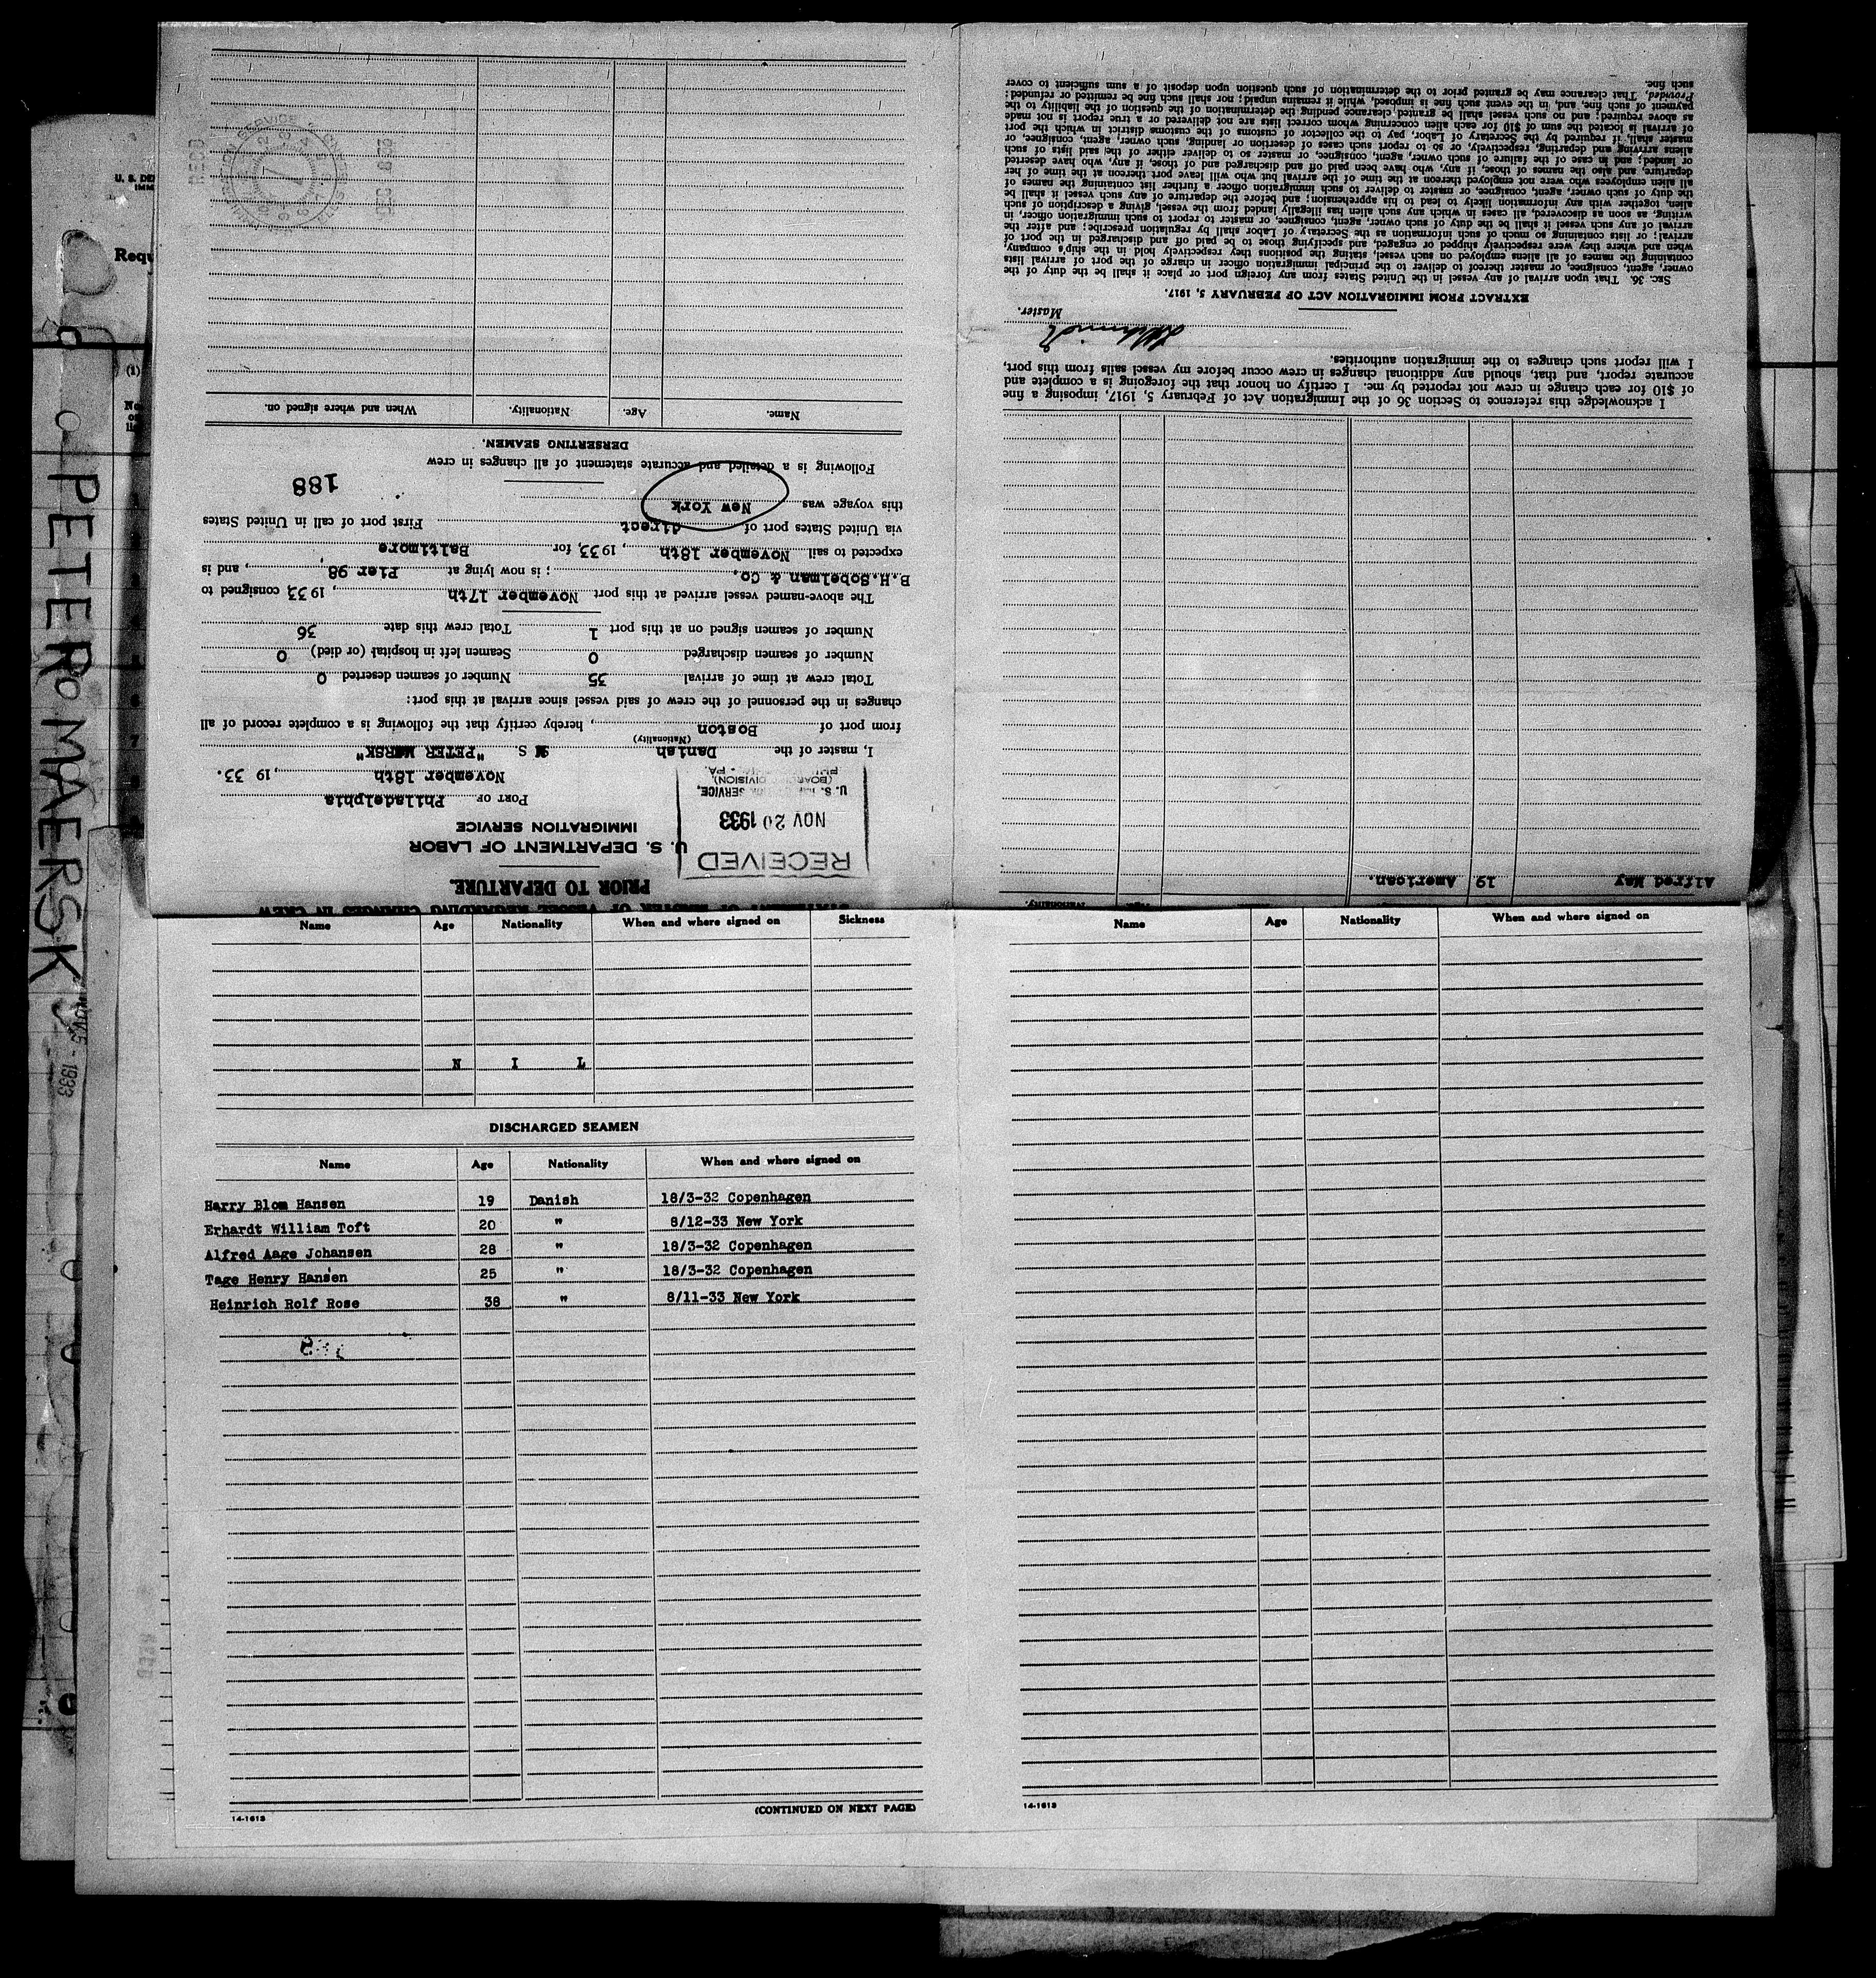 STATEMENT OF MASTER OF VESSEL REGARDING CHANGES IN CREW
PRIOR TO DEPARTURE.
U. S. DEPARTMENT OF LABOR
IMMIGRATION SERVICE
RECEIVED
NOV 20 1933
U. S. SERVICE,
(BOARDING DIVISION)
PA.
PORT OF Philadelphia
November 18th, 1933.
I, master of the Danish M S. "PETER MÆRSK"
(Nationality)
from port of Boston, hereby certify that the following is a complete record of all
changes in the personnel of the crew of said vessel since arrival at this port:
Total crew at time of arrival 35 Number of seamen deserted 0
Number of seamen discharged 0 Seamen left in hospital (or died) 0
Number of seamen signed on at this port 1 Total crew this date 36
The above-named vessel arrived at this port November 17th, 1933, consigned to
B.H.Sobelman & Co. ; is now lying at Pier 98, and is
expected to sail November 18th, 1933, for Baltimore
via United States port of direct First port of call in United States
this voyage was New York
188
Following is a detailed and accurate statement of all changes in crew
DERSERTING SEAMEN.
Name. Age. Nationality. When and where signed on.
RECD
DEC
Nationality.
Alfred May 19 American.
I acknowledge this reference to Section 36 of the Immigration Act of February 5, 1917, imposing a fine
of $10 for each change in crew not reported by me. I certify on honor that the foregoing is a complete and
accurate report, and that, should any additional changes in crew occur before my vessel sails from this port,
I will report such changes to the immigration authorities.
Master.
EXTRACT FROM IMMIGRATION ACT OF FEBRUARY 5, 1917.
SEC. 36. That upon arrival of any vessel in the United States from any foreign port or place it shall be the duty of the
owner, agent, consignee, or master thereof to deliver to the principal immigration officer in charge of the port of arrival lists
containing the names of all aliens employed on such vessel, stating the positions they respectively hold in the ship's company,
when and where they were respectively shipped or engaged, and specifying those to be paid off and discharged in the port of
arrival; or lists containing so much of such information as the Secretary of Labor shall by regulation prescribe; and after the
arrival of any such vessel it shall be the duty of such owner, agent, consignee, or master to report to such immigration officer, in
writing, as soon as discovered, all cases in which any such alien has illegally landed from the vessel, giving a description of such
alien, together with any information likely to lead to his apprehension; and before the departure of any such vessel it shall be
the duty of such owner, agent, consignee, or master to deliver to such immigration officer a further list containing the names of
all alien employees who were not employed thereon at the time of the arrival but who will leave port thereon at the time of her
departure, and also the names of those, if any, who have been paid off and discharged and of those, if any, who have deserted
or landed; and in case of the failure of such owner, agent, consignee, or master so to deliver either of the said lists of such
aliens arriving and departing, respectively, or so to report such cases of desertion or landing, such owner, agent, consignee, or
master shall, if required by the Secretary of Labor, pay to the collector of customs of the customs district in which the port
of arrival is located the sum of $10 for each alien concerning whom correct lists are not delivered or a true report is not made
as above required; and no such vessel shall be granted clearance pending the determination of the question of the liability to the
payment of such fine, and, in the event such fine is imposed, while it remains unpaid; nor shall such fine be remitted or refunded:
Provided, That clearance may be granted prior to the determination of such question upon deposit of a sum sufficient to cover
such fine.
Name Age Nationality When and where signed on Sickness
N I L
DISCHARGED SEAMEN
Name Age Nationality When and where signed on
Harry Blom Hansen 19 Danish 18/3-32 Copenhagen
Erhardt William Toft 20 " 8/12-33 New York
Alfred Aage Johansen 28 " 18/3-32 Copenhagen
Tage Henry Hansen 25 " 18/3-32 Copenhagen
Heinrich Rolf Rose 38 " 8/11-33 New York
14-1613
(CONTINUED ON NEXT PAGE)
Name Age Nationality When and where signed on
14-1613
PETER MAERSK
NOV 5 - 1933
U. S. DE
IMM
Requ
(1)
No